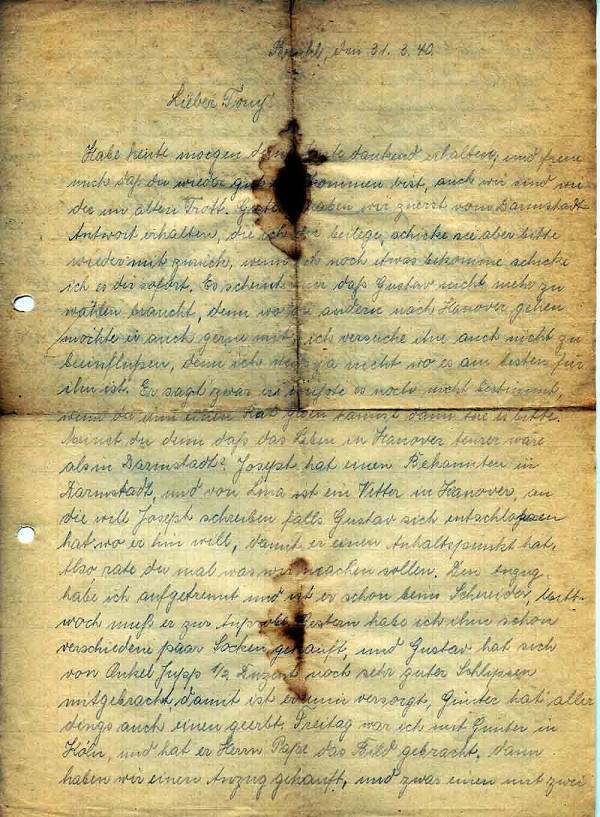 Brühl, den 31. 3. 40.
Lieber Tony!
Habe heute morgen dankend erhalten, und freue
mich daß du wieder gut bist, auch wir sind wie
der im alten Trott. haben wir zuerst vom Darmstadt
Antwort erhalten, die ich dir beilege, schicke sie aber bitte
wieder mit zurück, wenn ich noch etwas bekomme schicke
ich es dir sofort. Es scheint mir daß Gustav nicht mehr zu
wählen braucht, denn wo die andern nach Hanover gehen
möchte er auch gerne mit, ich versuche ihn auch nicht zu
beinflußen, denn ich weiß ja nicht wo es am besten für
ihn ist. Er sagt zwar er wüßte es noch nicht bestimmt,
wenn du ihm einen Rat geben kannst dann tue es bitte.
Meinst du denn daß das Leben in Hanover teurer wäre
als in Darmstadt? Joseph hat einen Bekannten in
Darmstadt, und von Lina ist ein Vetter in Hanover, an
die will Joseph schreiben falls Gustav sich entschloßen
hat wo er hin will, damit er einen Anhaltspunkt hat.
Also rate du mal was wir machen sollen. Den Anzug
habe ich aufgetrennt und ist er schon beim Schneider, Mitt-
woch muß er zur Anprobe. Gestern habe ich ihm schon
verschiedene paar Socken gekauft, und Gustav hat sich
von Onkel Jupp 1/2 Duzent noch sehr guter Schlipsen
mitgebracht, damit ist er nun versorgt, Günter hat aller
dings auch einen geerbt. Freitag war ich mit Günter in
Köln, und hat er Herrn Pape das Bild gebracht. dann
haben wir einen Anzug gekauft, und zwar einen mit zwei